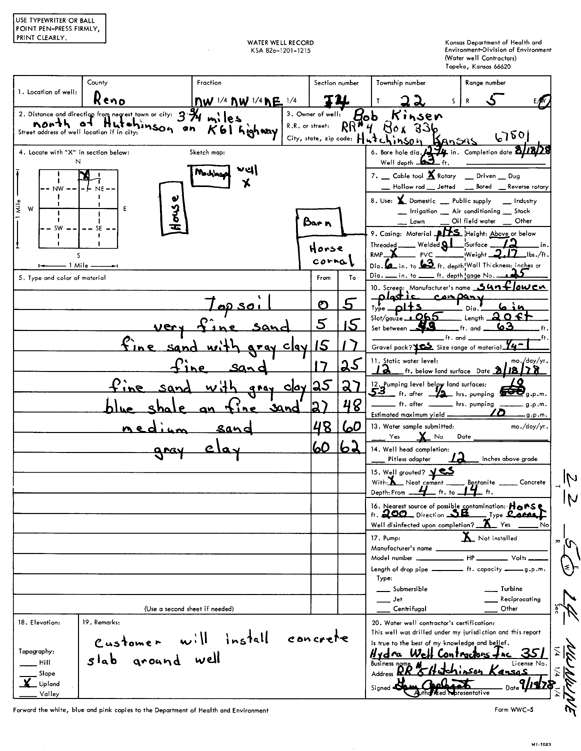 USE TYPEWRITER OR BALL
POINT PEN-PRESS FIRMLY,
PRINT CLEARLY.
WATER WELL RECORD
KSA 82a-1201-1215
Kansas Department of Health and
Environment-Division of Environment
(Water well Contractors)
Topeka, Kansas 66620
1. Location of well: County Reno Fraction NW 1/4 NW 1/4 NE 1/4 Section number Township number T 22 S Range number R 5 E/W
2. Distance and direction from nearest town or city: 3 3/4 miles
north of Hutchinson on K61 highway
Street address of well location if in city:
3. Owner of well: Bob Kinser
R.R. or street: RR#4 Box 336
City, state, zip code: Hutchinson Kansas 67501
4. Locate with "X" in section below: Sketch map:
N
NW NE
W E
SW SE
S
1 Mile
1 Mile
X
well
X
House
Barn
Horse
corral
6. Bore hole dia. Completion date 8/18/78
Well depth 63 ft.
7. Cable tool X Rotary Driven Dug
Hollow rod Jetted Bored Reverse rotary
8. Use: X Domestic Public supply Industry
Irrigation Air conditioning Stock
Lawn Oil field water Other
9. Casing: Material plts Height: Above or below
Threaded Welded gl Surface 12 in.
RMP X PVC Weight 2.17 lbs./ft.
Dia. 6 in. to 63 ft. depth Wall Thickness: inches or
Dia. in. to ft. depth gage No. .25
10. Screen: Manufacturer's name sunflower
plastic company
Type plts Dia. 6 in
Slot/gauze .065 Length 20 ft
Set between ft. and 63 ft.
ft. and ft.
Gravel pack? yes Size range of material 1/4-1
11. Static water level: mo./day/yr.
12 ft. below land surface Date 8/18/78
12. Pumping level below land surfaces:
53 ft. after 1/2 hrs. pumping 10 g.p.m.
ft. after hrs. pumping g.p.m.
Estimated maximum yield 10 g.p.m.
13. Water sample submitted: mo./day/yr.
Yes X No Date
14. Well head completion:
Pitless adapter 12 Inches above grade
15. Well grouted? yes
With: X Neat cement Bentonite Concrete
Depth: From 4 ft. to 14 ft.
16. Nearest source of possible contamination: Horse
ft. 200 Direction SE Type Corral
Well disinfected upon completion? X Yes No
17. Pump: X Not installed
Manufacturer's name
Model number HP Volts
Length of drop pipe ft. capacity g.p.m.
Type:
Submersible Turbine
Jet Reciprocating
Centrifugal Other
5. Type and color of material From To
Topsoil 0 5
very fine sand 5 15
fine sand with gray clay 15 17
fine sand 17 25
fine sand with gray clay 25 27
blue shale an fine sand 27 48
medium sand 48 60
gray clay 60 62
(Use a second sheet if needed)
18. Elevation:
Topography:
Hill
Slope
X Upland
Valley
19. Remarks:
Customer will install concrete
slab around well
20. Water well contractor's certification:
This well was drilled under my jurisdiction and this report
is true to the best of my knowledge and belief.
Hydra Well Contractors Inc 351
Business name License No.
Address RR Hutchinson Kansas
Signed Date 9/19/78
Authorized representative
Forward the white, blue and pink copies to the Department of Health and Environment
Form WWC-5